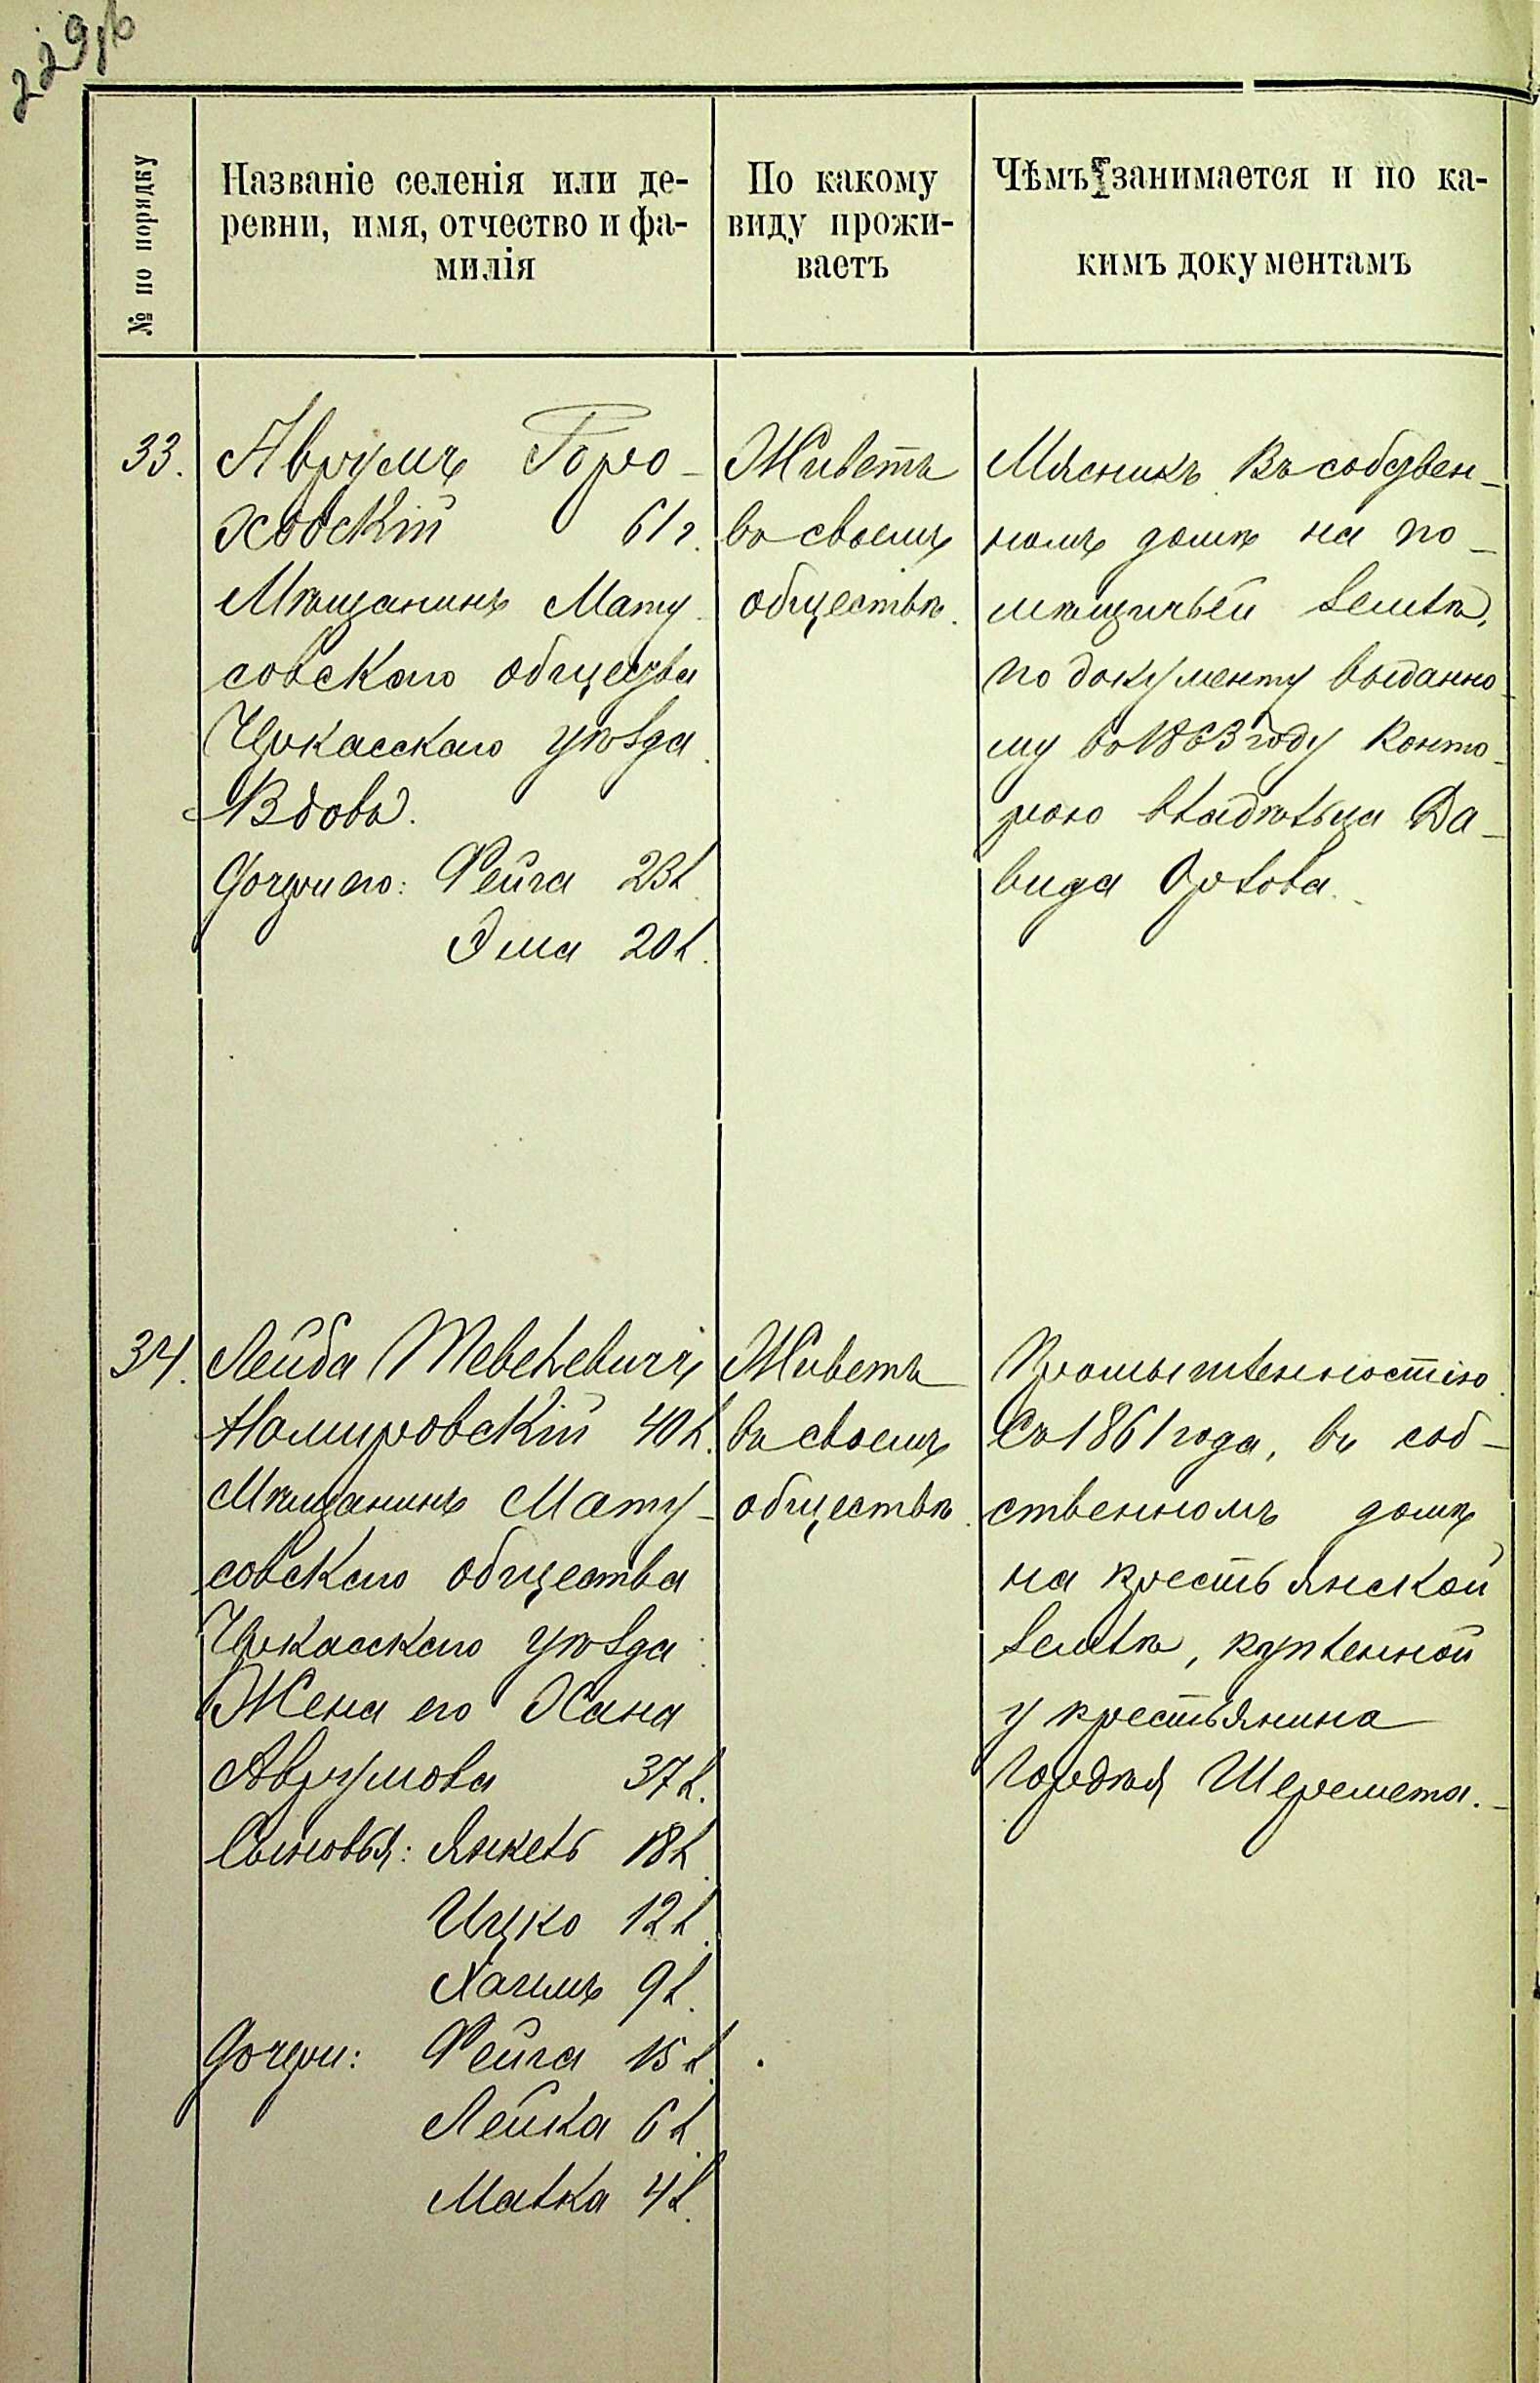 229об
№ по порядку
Названіе селенія или де-
ревни, имя, отчество и фа-
милія
По какому
виду прожи-
ваетъ
Чѣмъ занимается и по ка-
кимъ документамъ
33.
Аврумъ Горо-
ховскій 61 г.
Мѣщанинъ Мату-
совскаго общества
Черкасскаго уѣзда.
Вдовъ.
Дочери его: Фейга 23 л.
Эма 20 л.
Живетъ
въ своемъ
обществѣ.
Мясникъ. Въ собствен-
номъ домѣ на по-
мѣщичьей землѣ,
по документу выданно-
му въ 1863 году конто-
рою владѣльца Да-
вида Орлова.
34.
Лейба Шевелевичъ
Номировскій 40 л.
Мѣщанинъ Мату-
совскаго общества
Черкасскаго уѣзда.
Жена его Хана
Аврумова 37 л.
Сыновья: Янкель 18 л.
Ицко 12 л.
Хаимъ 9 л.
Дочери: Фейга 15 л.
Лейка 6 л.
Малка 4 л.
Живетъ
въ своемъ
обществѣ.
Промышленностію
Съ 1861 года, въ соб-
ственномъ домѣ
на крестьянской
землѣ, купленной
у крестьянина
Гордѣя Шеремета.